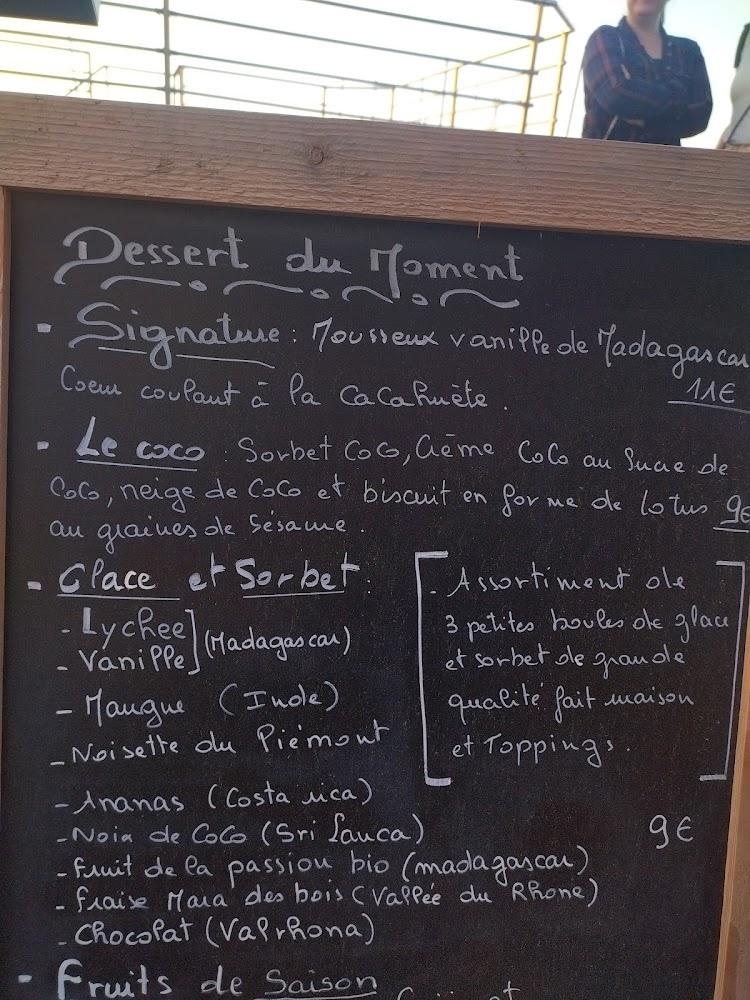 Dessert du Moment
- Signature : Mousseux vanille de Madagascar
Coeur coulant à la cacahuète.
11€
- Le coco : Sorbet Coco, Crème Coco au Sucre de
Coco, neige de Coco et biscuit en forme de lotus 9€
au graines de Sésame.
- Glace et Sorbet :
- Lychee
- Vanille ] (Madagascar)
- Mangue (Inde)
- Noisette du Piémont
- Ananas (Costa rica)
- Noix de Coco (Sri Lanca)
- Fruit de la passion bio (madagascar)
- Fraise Mara des bois (Vallée du Rhone)
- Chocolat (Valrhona)
[ - Assortiment de
3 petites boules de glace
et sorbet de grande
qualité fait maison
et Toppings. ]
9€
- Fruits de Saison